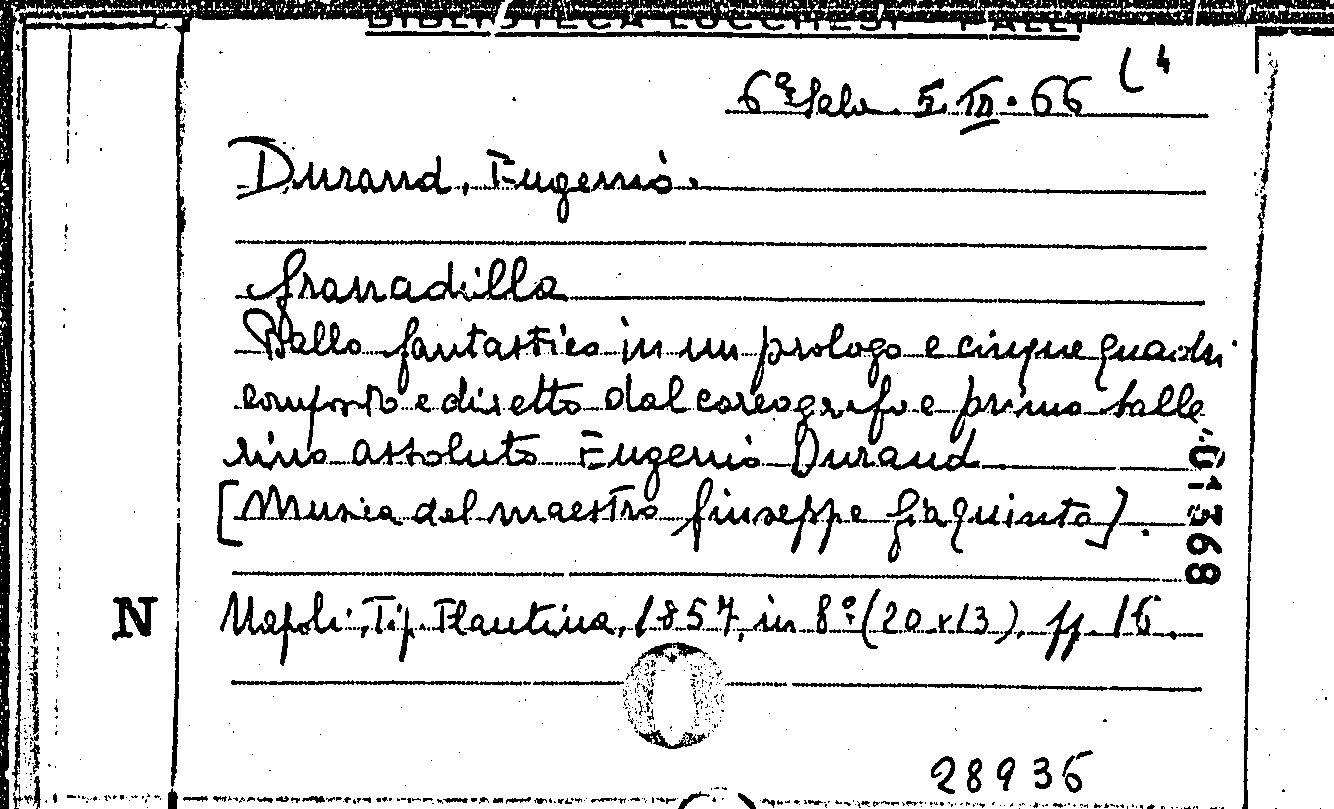 BIBLIOTECA LUCCHESI - PALLI
6ª Sala. 5. III. 66 (4
Durand, Eugenio.
Granadilla
Ballo fantastico in un prologo e cinque quadri
composto e diretto dal coreografo e primo balle
rino assoluto Eugenio Durand.
[Musica del maestro Giuseppe Giaquinto].
N
Napoli, Tip. Plautina, 1857, in 8º (20 x 13), pp. 16.
01368
28936